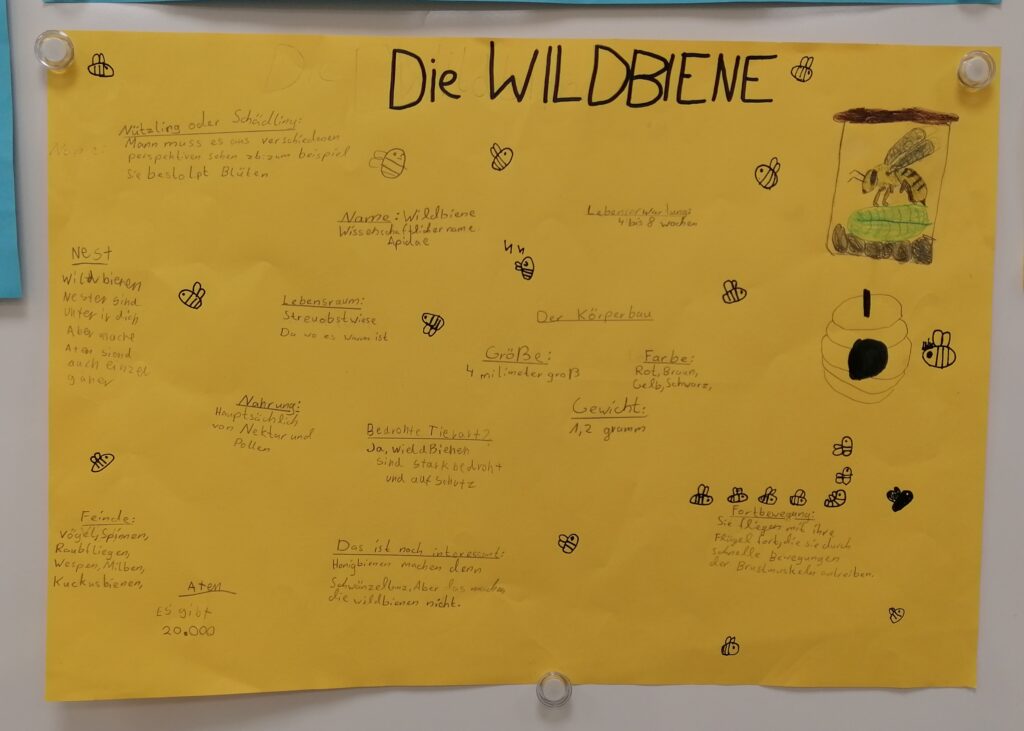 Die WILDBIENE
Nützling oder Schädling:
Mann muss es aus verschiedenen
perspektiven sehen zb: zum beispiel
Sie bestolpt Blüten
Name:
Name: Wildbiene
Wissenschaftlichername
Apidae
Lebenserwartung:
4 bis 8 wochen
Nest
Wildbienen
Nester sind
Aber
auch einzel
Lebensraum:
Streuobstwiese
Da wo es warm ist
Der Körperbau
Größe:
4 milimeter groß
Farbe:
Rot, Braun,
Gelb, Schwarz,
Gewicht:
1,2 gramm
Nahrung:
Hauptsächlich
von Nektar und
Pollen
Bedrohte Tierart?
Ja, wieldBienen
sind stark bedroht
und auf Schutz
Feinde:
Vögel, Spinnen,
Raubfliegen,
Wespen, Milben,
Kuckusbienen,
Aten
ES gibt
20.000
Das ist noch interessant:
Honigbienen machen denn
Schwänzeltanz, Aber das machen
die wildbienen nicht.
Fortbewegung:
Sie fliegen mit ihre
Flügel fort, die sie durch
schnelle Bewegungen
der Brustmuskeln antreiben.